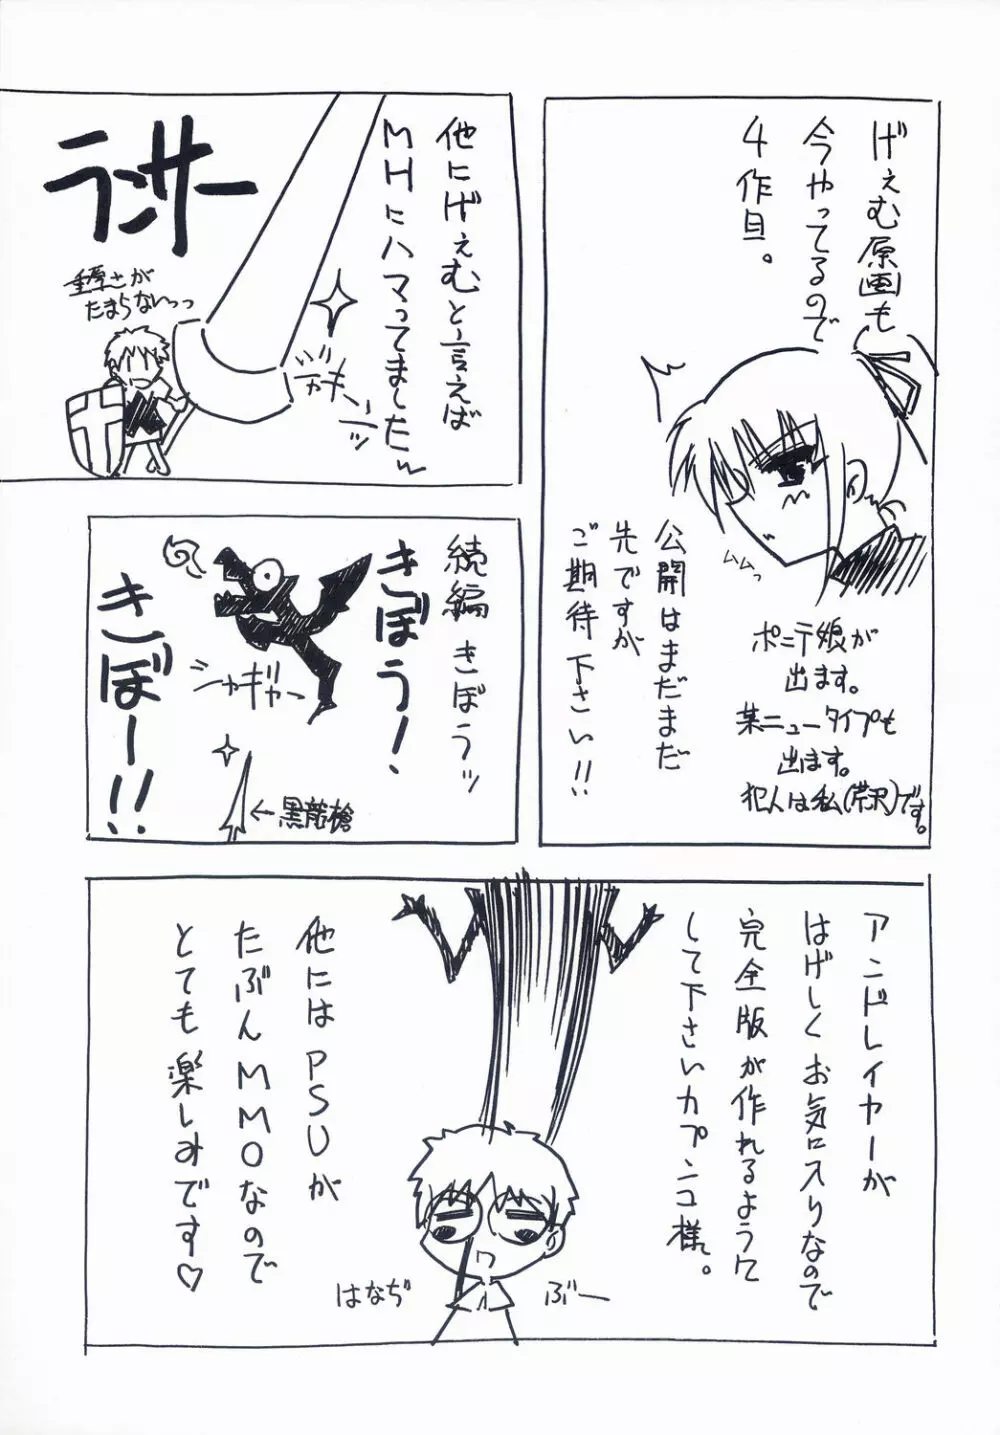 げぇむ原画も
今やってるので
4作目。
ムムっ
公開はまだまだ
先ですが
ご期待下さい!!
ポニテ娘が
出ます。
某ニュータイプも
出ます。
犯人は私(芹沢)です。
他にげぇむと言えば
MHにハマってました
ランサー
重厚さが
たまらないっっ
ジャキーーッ
続編きぼうッ
きぼう!
きぼー!!
シャギャー
←黒龍槍
アンドレイヤーが
はげしくお気に入りなので
完全版が作れるように
して下さいカプンコ様。
他にはPSUが
たぶんMMOなので
とても楽しみです♡
はなぢ
ぶー